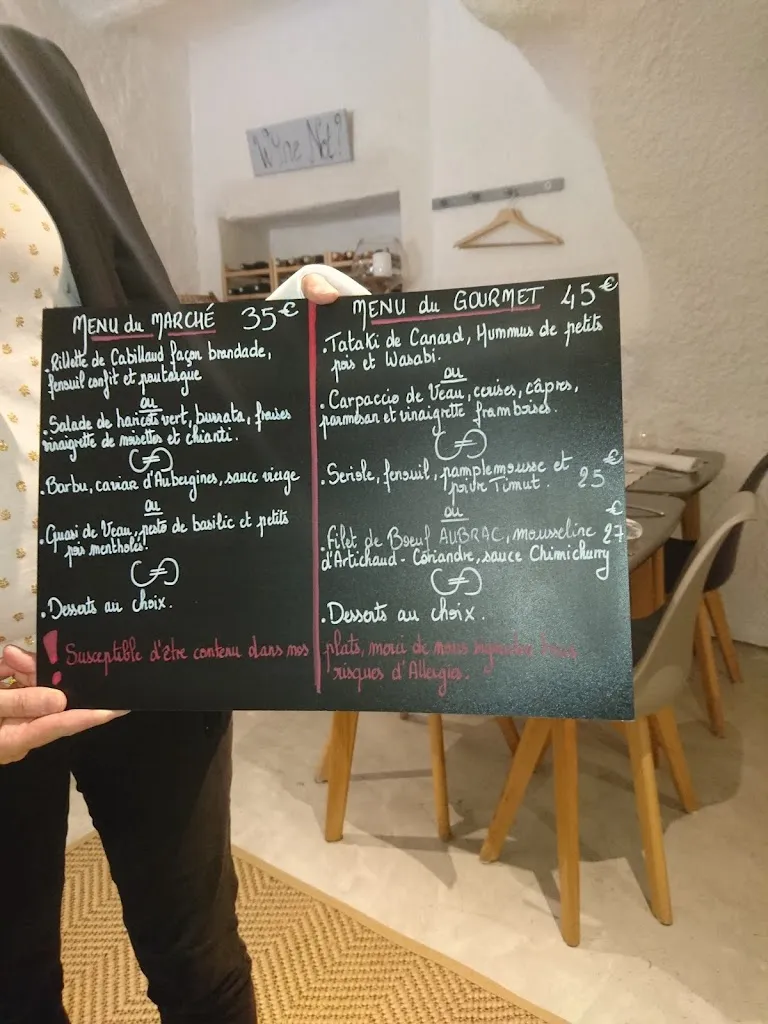 Wine Not?
MENU du MARCHÉ 35€
. Rillette de Cabillaud façon brandade,
fenouil confit et poutargue
ou
. Salade de haricots vert, burrata, fraises
vinaigrette de noisettes et chianti.
. Barbu, caviar d'Aubergines, sauce vierge
ou
. Quasi de Veau, pesto de basilic et petits
pois mentholés.
. Desserts au choix.
MENU du GOURMET 45€
. Tataki de Canard, Hummus de petits
pois et Wasabi.
ou
. Carpaccio de Veau, cerises, câpres,
parmesan et vinaigrette framboises.
. Seriole, fenouil, pamplemousse et
poivre Timut. 25€
ou
. Filet de Boeuf AUBRAC, mousseline 27€
d'Artichaud - Coriandre, sauce Chimichurry
. Desserts au choix.
! Susceptible d'être contenu dans nos plats, merci de nous
risques d'Allergies.